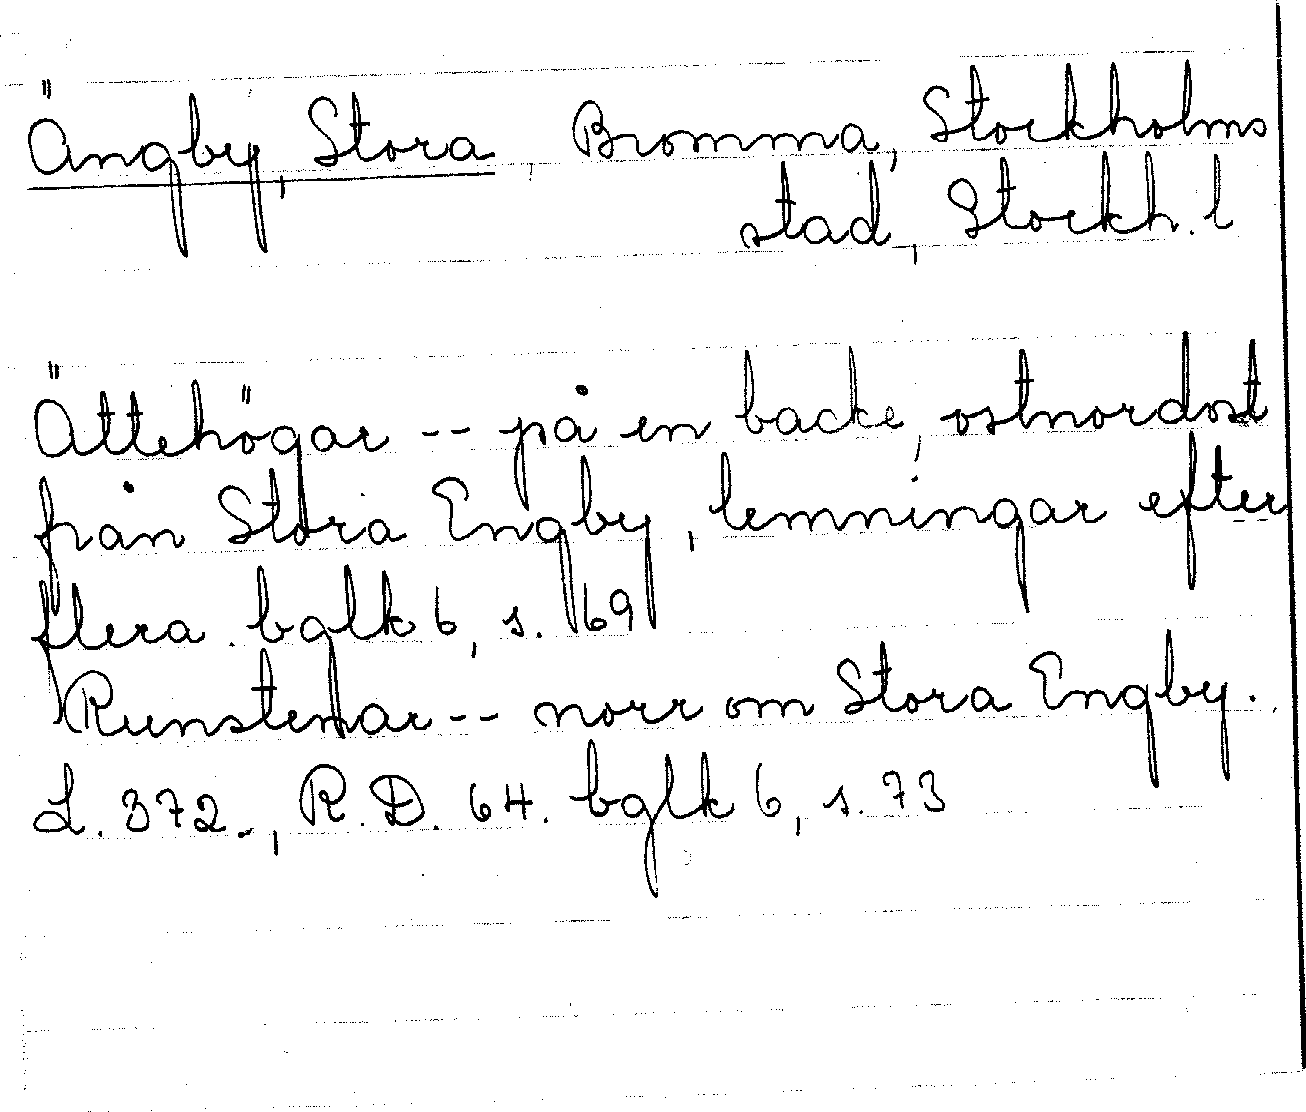 Ängby, Stora, Bromma, Stockholms
stad, Stockh. l
Ättehögar -- på en backe, ostnordost
från Stora Engby, lemningar efter
flera. bglk 6, s. 69
Runstenar -- norr om Stora Engby.
L. 372., R.D. 64. bglk 6, s. 73